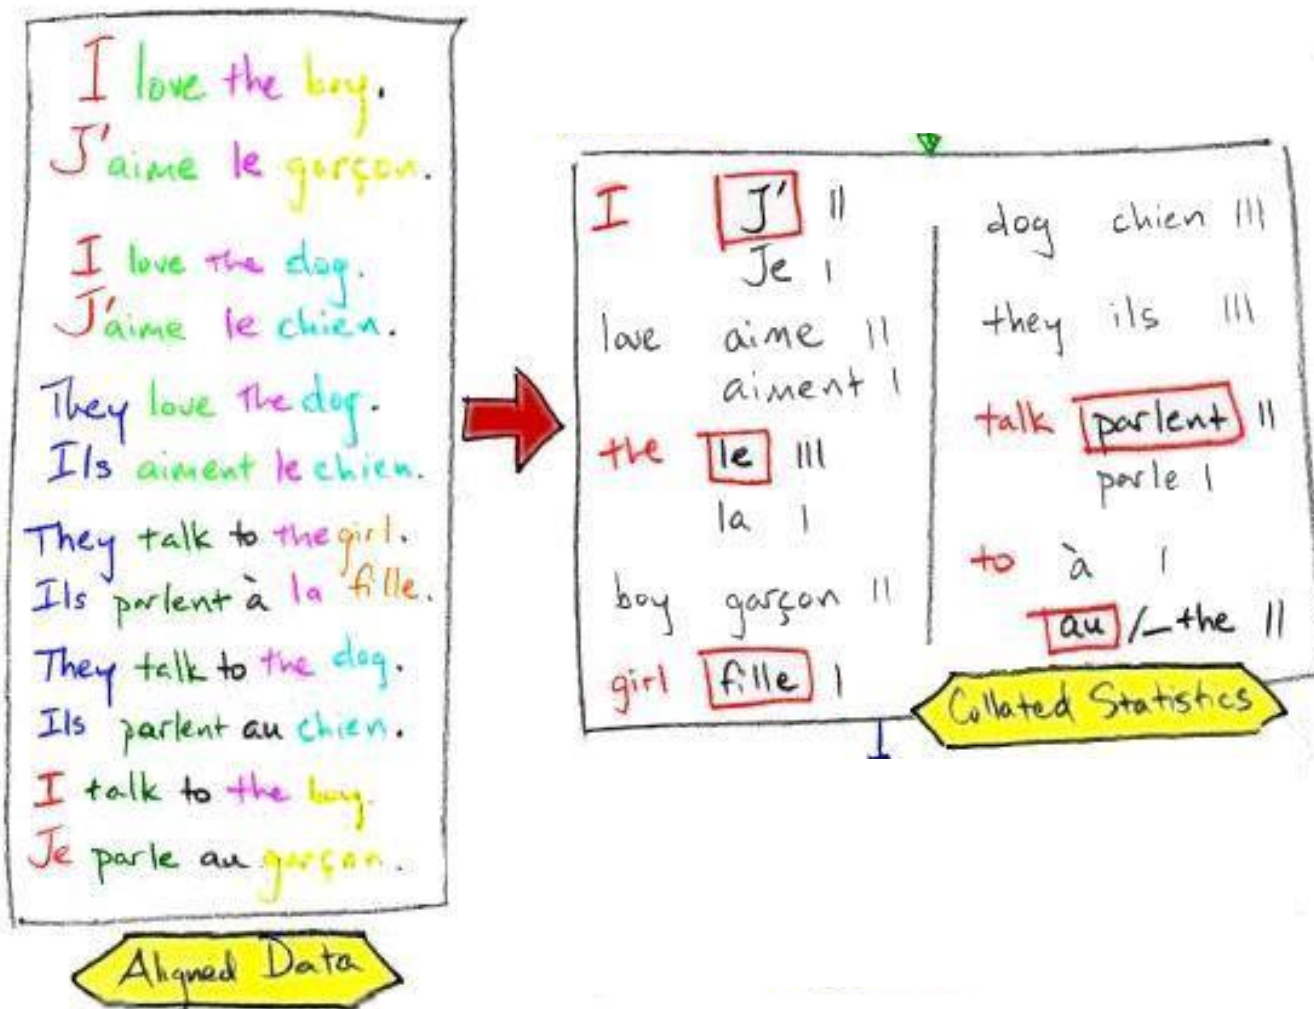 I love the boy.
J'aime le garçon.
I love the dog.
J'aime le chien.
They love the dog.
Ils aiment le chien.
They talk to the girl.
Ils parlent à la fille.
They talk to the dog.
Ils parlent au chien.
I talk to the boy.
Je parle au garçon.
Aligned Data
I J' ||
Je |
love aime ||
aiment |
the le |||
la |
boy garçon ||
girl fille |
dog chien |||
they ils |||
talk parlent ||
parle |
to à |
au /_the ||
Collated Statistics